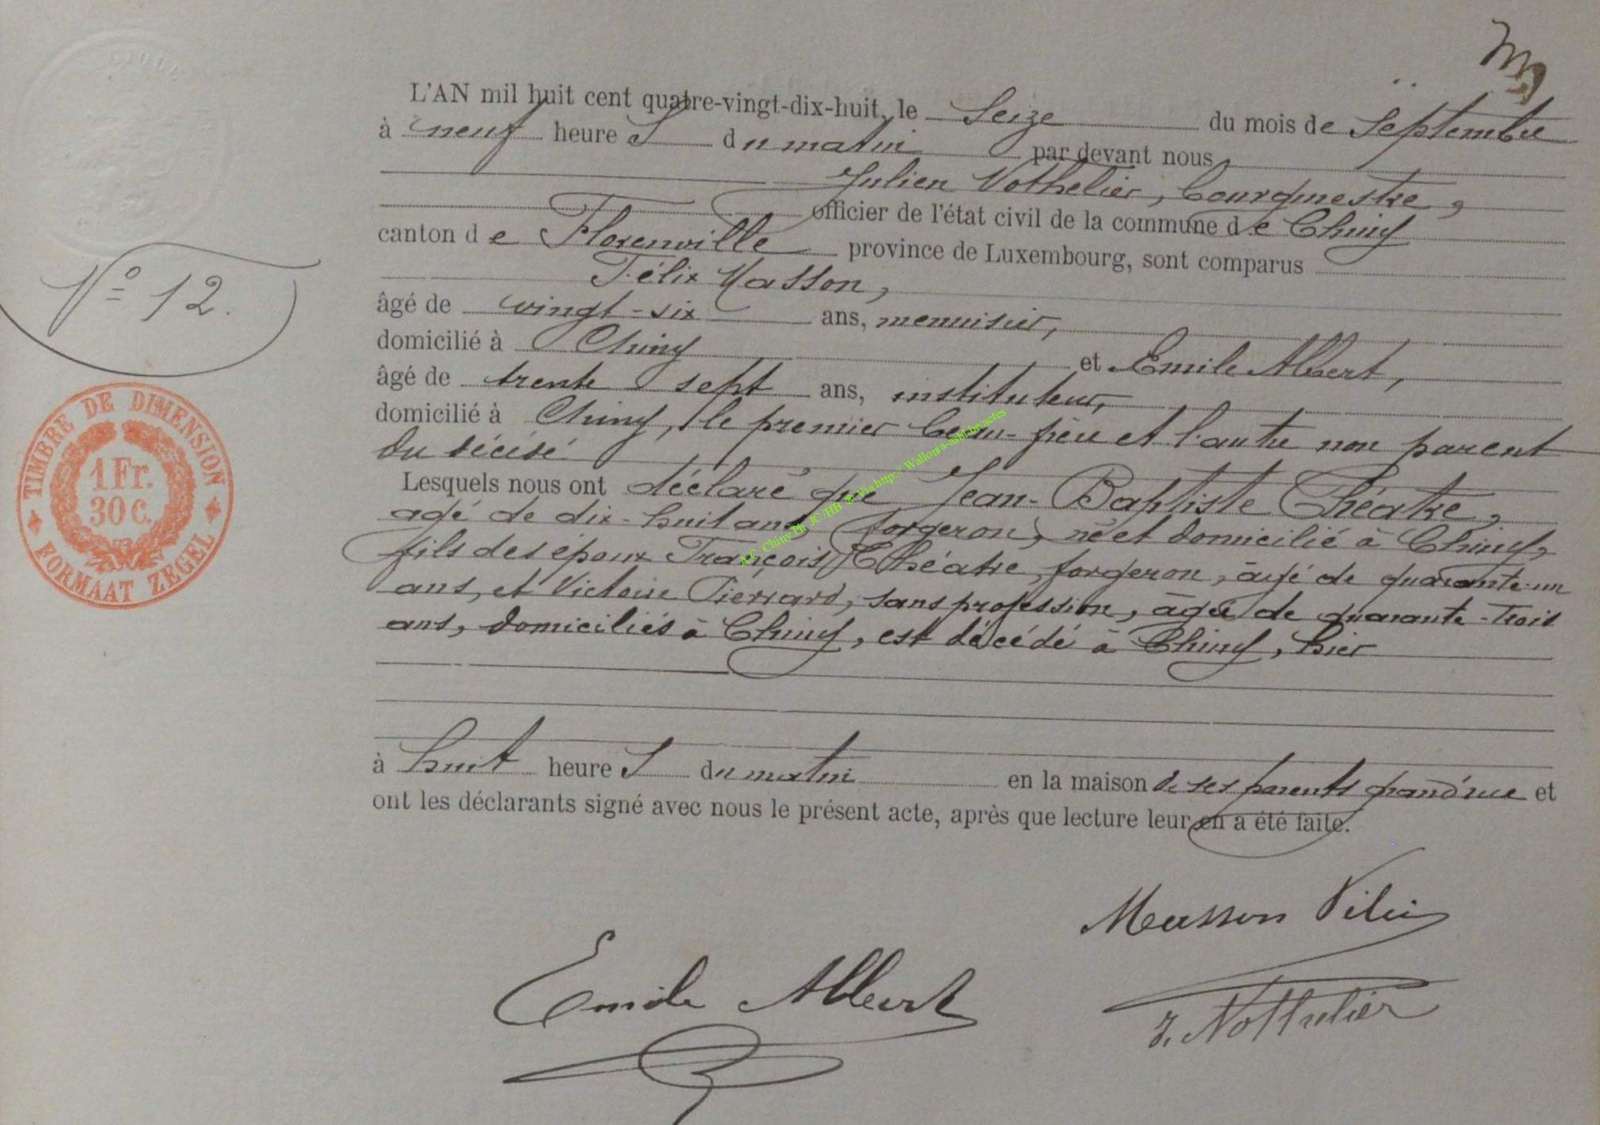 L'AN mil huit cent quatre-vingt-dix-huit, le Seize du mois de Septembre
à neuf heure s du matin par devant nous
Julien Nothelier, bourgmestre,
officier de l'état civil de la commune de Chiny
canton de Florenville province de Luxembourg, sont comparus
Félix Masson,
âgé de vingt-six ans, menuisier,
domicilié à Chiny et Emile Albert,
âgé de trente sept ans, instituteur,
domicilié à Chiny, le premier beau-frère et l'autre non parent
du décédé
Lesquels nous ont déclaré que Jean-Baptiste Théatre,
agé de dix-huit ans, forgeron, né et domicilié à Chiny,
fils des époux François Théatre, forgeron, âgé de quarante-un
ans, et Victoire Pierrard, sans profession, âgée de quarante-trois
ans, domiciliés à Chiny, est décédé à Chiny, hier
à huit heure s du matin en la maison de ses parents grand'rue et
ont les déclarants signé avec nous le présent acte, après que lecture leur en a été faite.
Masson Félix
Emile Albert
J. Nothelier
N° 12.
TIMBRE DE DIMENSION
1 Fr.
30 C.
FORMAAT ZEGEL